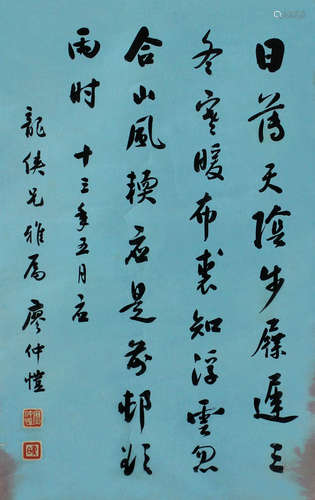 日薄天陰步屧遲三
冬寒暖布裘知浮雲忽
合山風轉應是前邨欲
雨时 十三年五月应
龍俠兄雅屬 廖仲愷